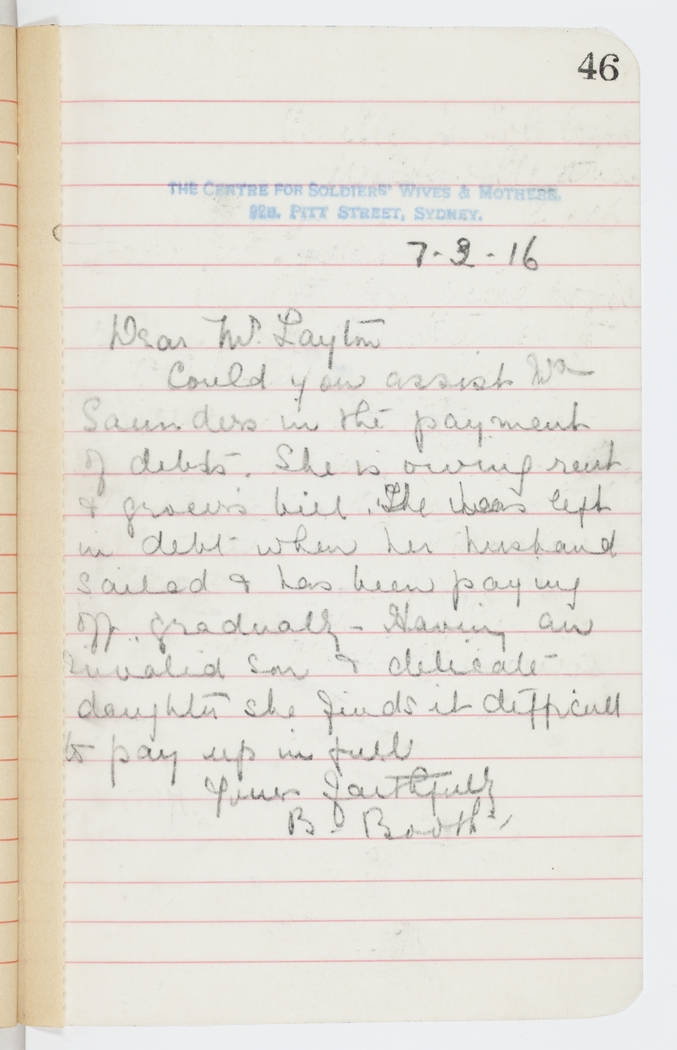 46
THE CENTRE FOR SOLDIERS' WIVES & MOTHERS.
PITT STREET, SYDNEY.
7-3-16
Dear Mr. Layton
Could you assist Mrs
Saunders in the payment
of debts. She is owing rent
& grocer's bill. She was left
in debt when her husband
sailed & has been paying
off gradually - Having an
invalid son & delicate
daughter she finds it difficult
to pay up in full
Yours faithfully
B. Booth